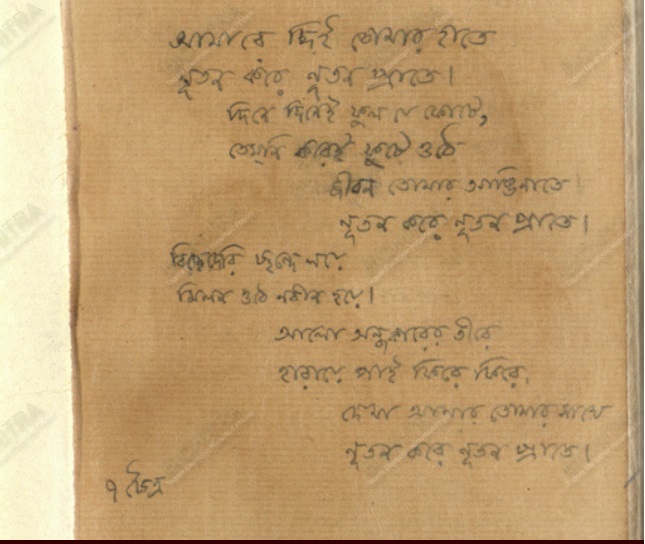 আমারে দিই তোমার হাতে
নূতন করে নূতন প্রাতে।
দিনে দিনেই ফুল যে ফোটে,
তেমনি করেই ফুটে ওঠে
জীবন তোমার আঙিনাতে
নূতন করে নূতন প্রাতে।
বিচ্ছেদেরি ছন্দে লয়ে
মিলন ওঠে নবীন হয়ে।
আলো অন্ধকারের তীরে
হারায়ে পাই ফিরে ফিরে,
দেখা আমার তোমার সাথে
নূতন করে নূতন প্রাতে।
৭ চৈত্র